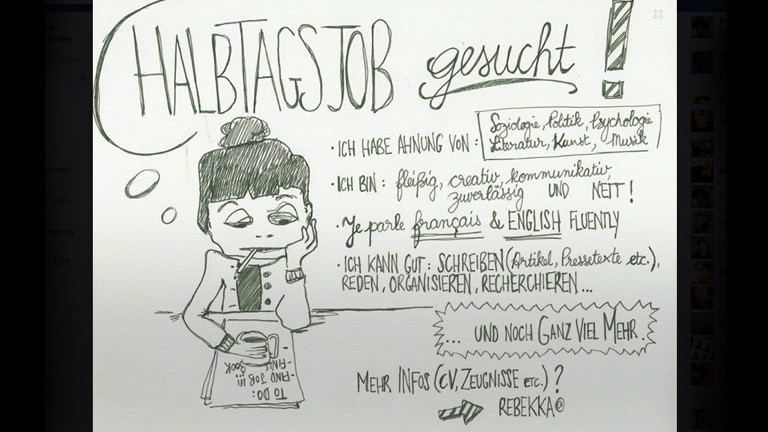 HALBTAGSJOB gesucht!
· ICH HABE AHNUNG VON: Soziologie, Politik, Psychologie
Literatur, Kunst, Musik
· ICH BIN: fleißig, creativ, kommunikativ,
zuverlässig UND NETT!
· Je parle français & ENGLISH FLUENTLY
· ICH KANN GUT: SCHREIBEN (Artikel, Pressetexte etc.),
REDEN, ORGANISIEREN, RECHERCHIEREN...
... UND NOCH GANZ VIEL MEHR.
MEHR INFOS (CV, ZEUGNISSE etc.)?
REBEKKA@
TO DO:
- FIND JOB !!!
BOOK